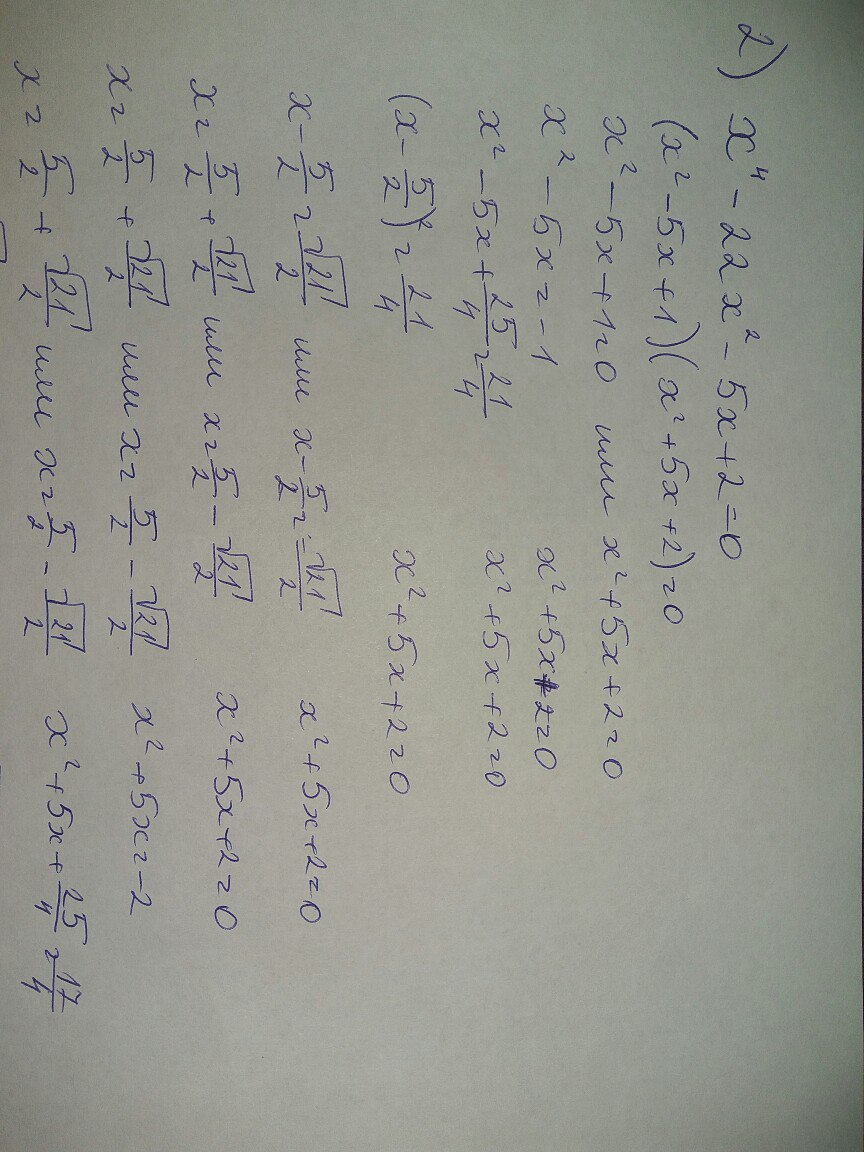 2) x⁴ - 22x² - 5x + 2 = 0
(x² - 5x + 1)(x² + 5x + 2) = 0
x² - 5x + 1 = 0 или x² + 5x + 2 = 0
x² - 5x = -1 x² + 5x + 2 = 0
x² - 5x + 25/4 = 21/4 x² + 5x + 2 = 0
(x - 5/2)² = 21/4 x² + 5x + 2 = 0
x - 5/2 = √21/2 или x - 5/2 = -√21/2 x² + 5x + 2 = 0
x = 5/2 + √21/2 или x = 5/2 - √21/2 x² + 5x + 2 = 0
x = 5/2 + √21/2 или x = 5/2 - √21/2 x² + 5x = -2
x = 5/2 + √21/2 или x = 5/2 - √21/2 x² + 5x + 25/4 = 17/4